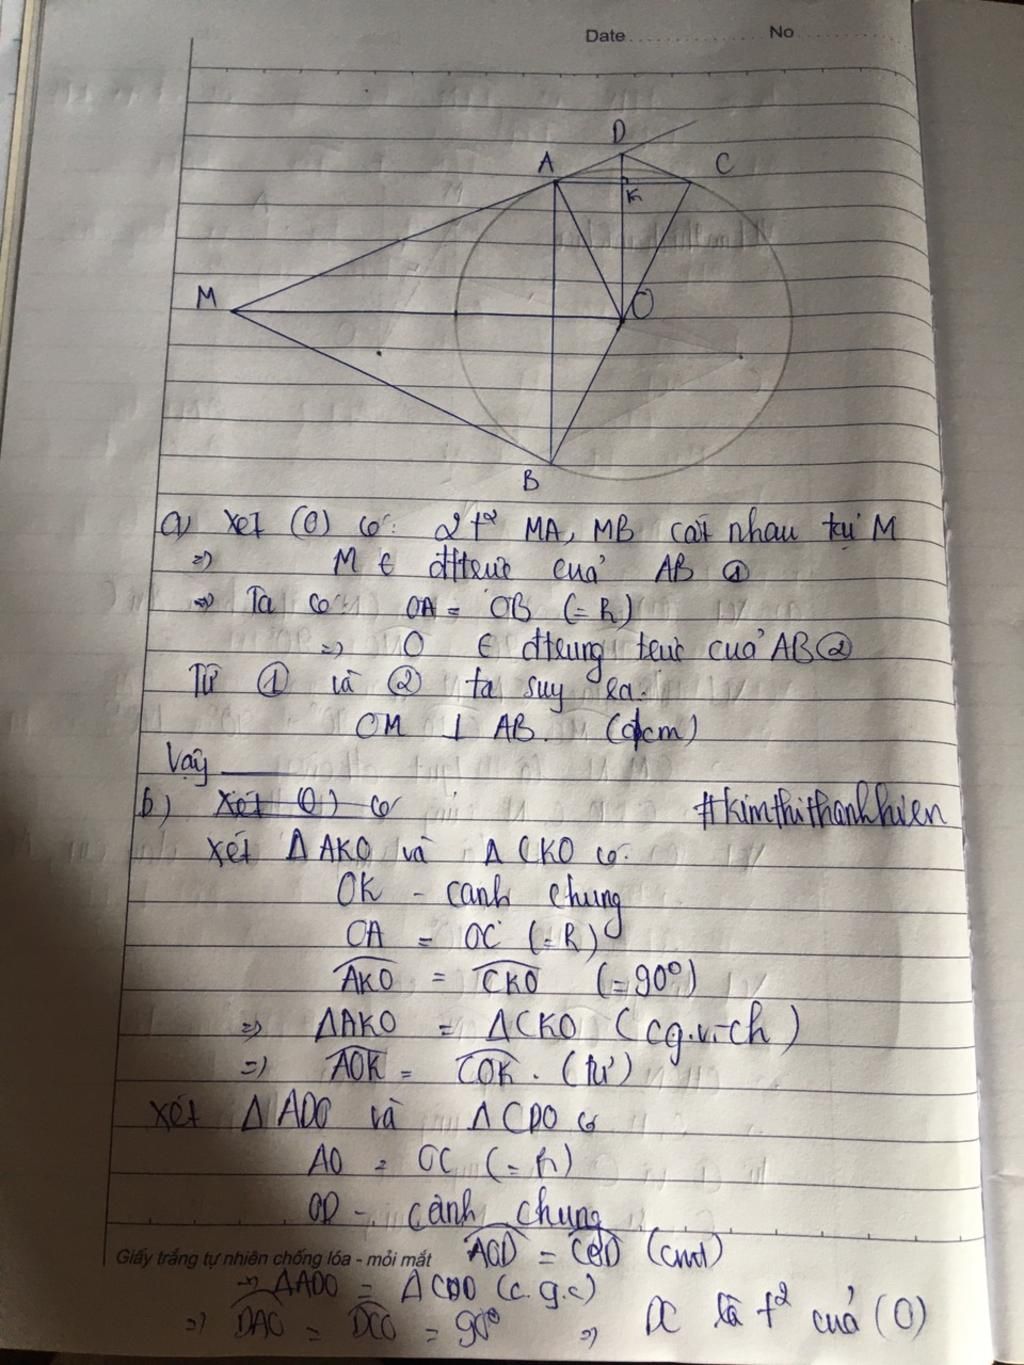 Date No
D
A C
K
M O
B
a) Xét (O) có: 2 t² MA, MB cắt nhau tại M
=> M ∈ đttrực của AB ①
=> Ta có: OA = OB (=R)
=> O ∈ đtrung trực của AB ②
Từ ① và ② ta suy ra:
OM ⊥ AB. (đpcm)
Vậy
b) Xét (O) có
#kimthithanhhien
Xét Δ AKO và Δ CKO có:
OK - cạnh chung
OA = OC (=R)
AKO = CKO (=90°)
=> ΔAKO = ΔCKO (cg.v-ch)
=> AOK = COK. (tứ)
Xét Δ ADO và Δ CDO có
AO = OC (=R)
OD - cạnh chung
Giấy trắng tự nhiên chống lóa - mỏi mắt AOD = COD (cmt)
=> ΔADO = ΔCDO (c.g.c)
=> DAO = DCO = 90° => DC là t² của (O)